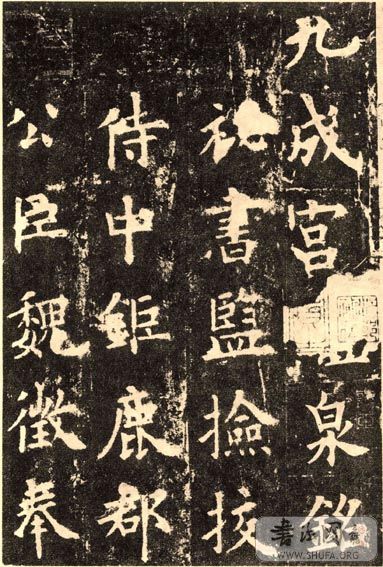 九成宮泉銘
秘書監撿挍
侍中鉅鹿郡
公臣魏徵奉
書法网
WWW.SHUFA.ORG